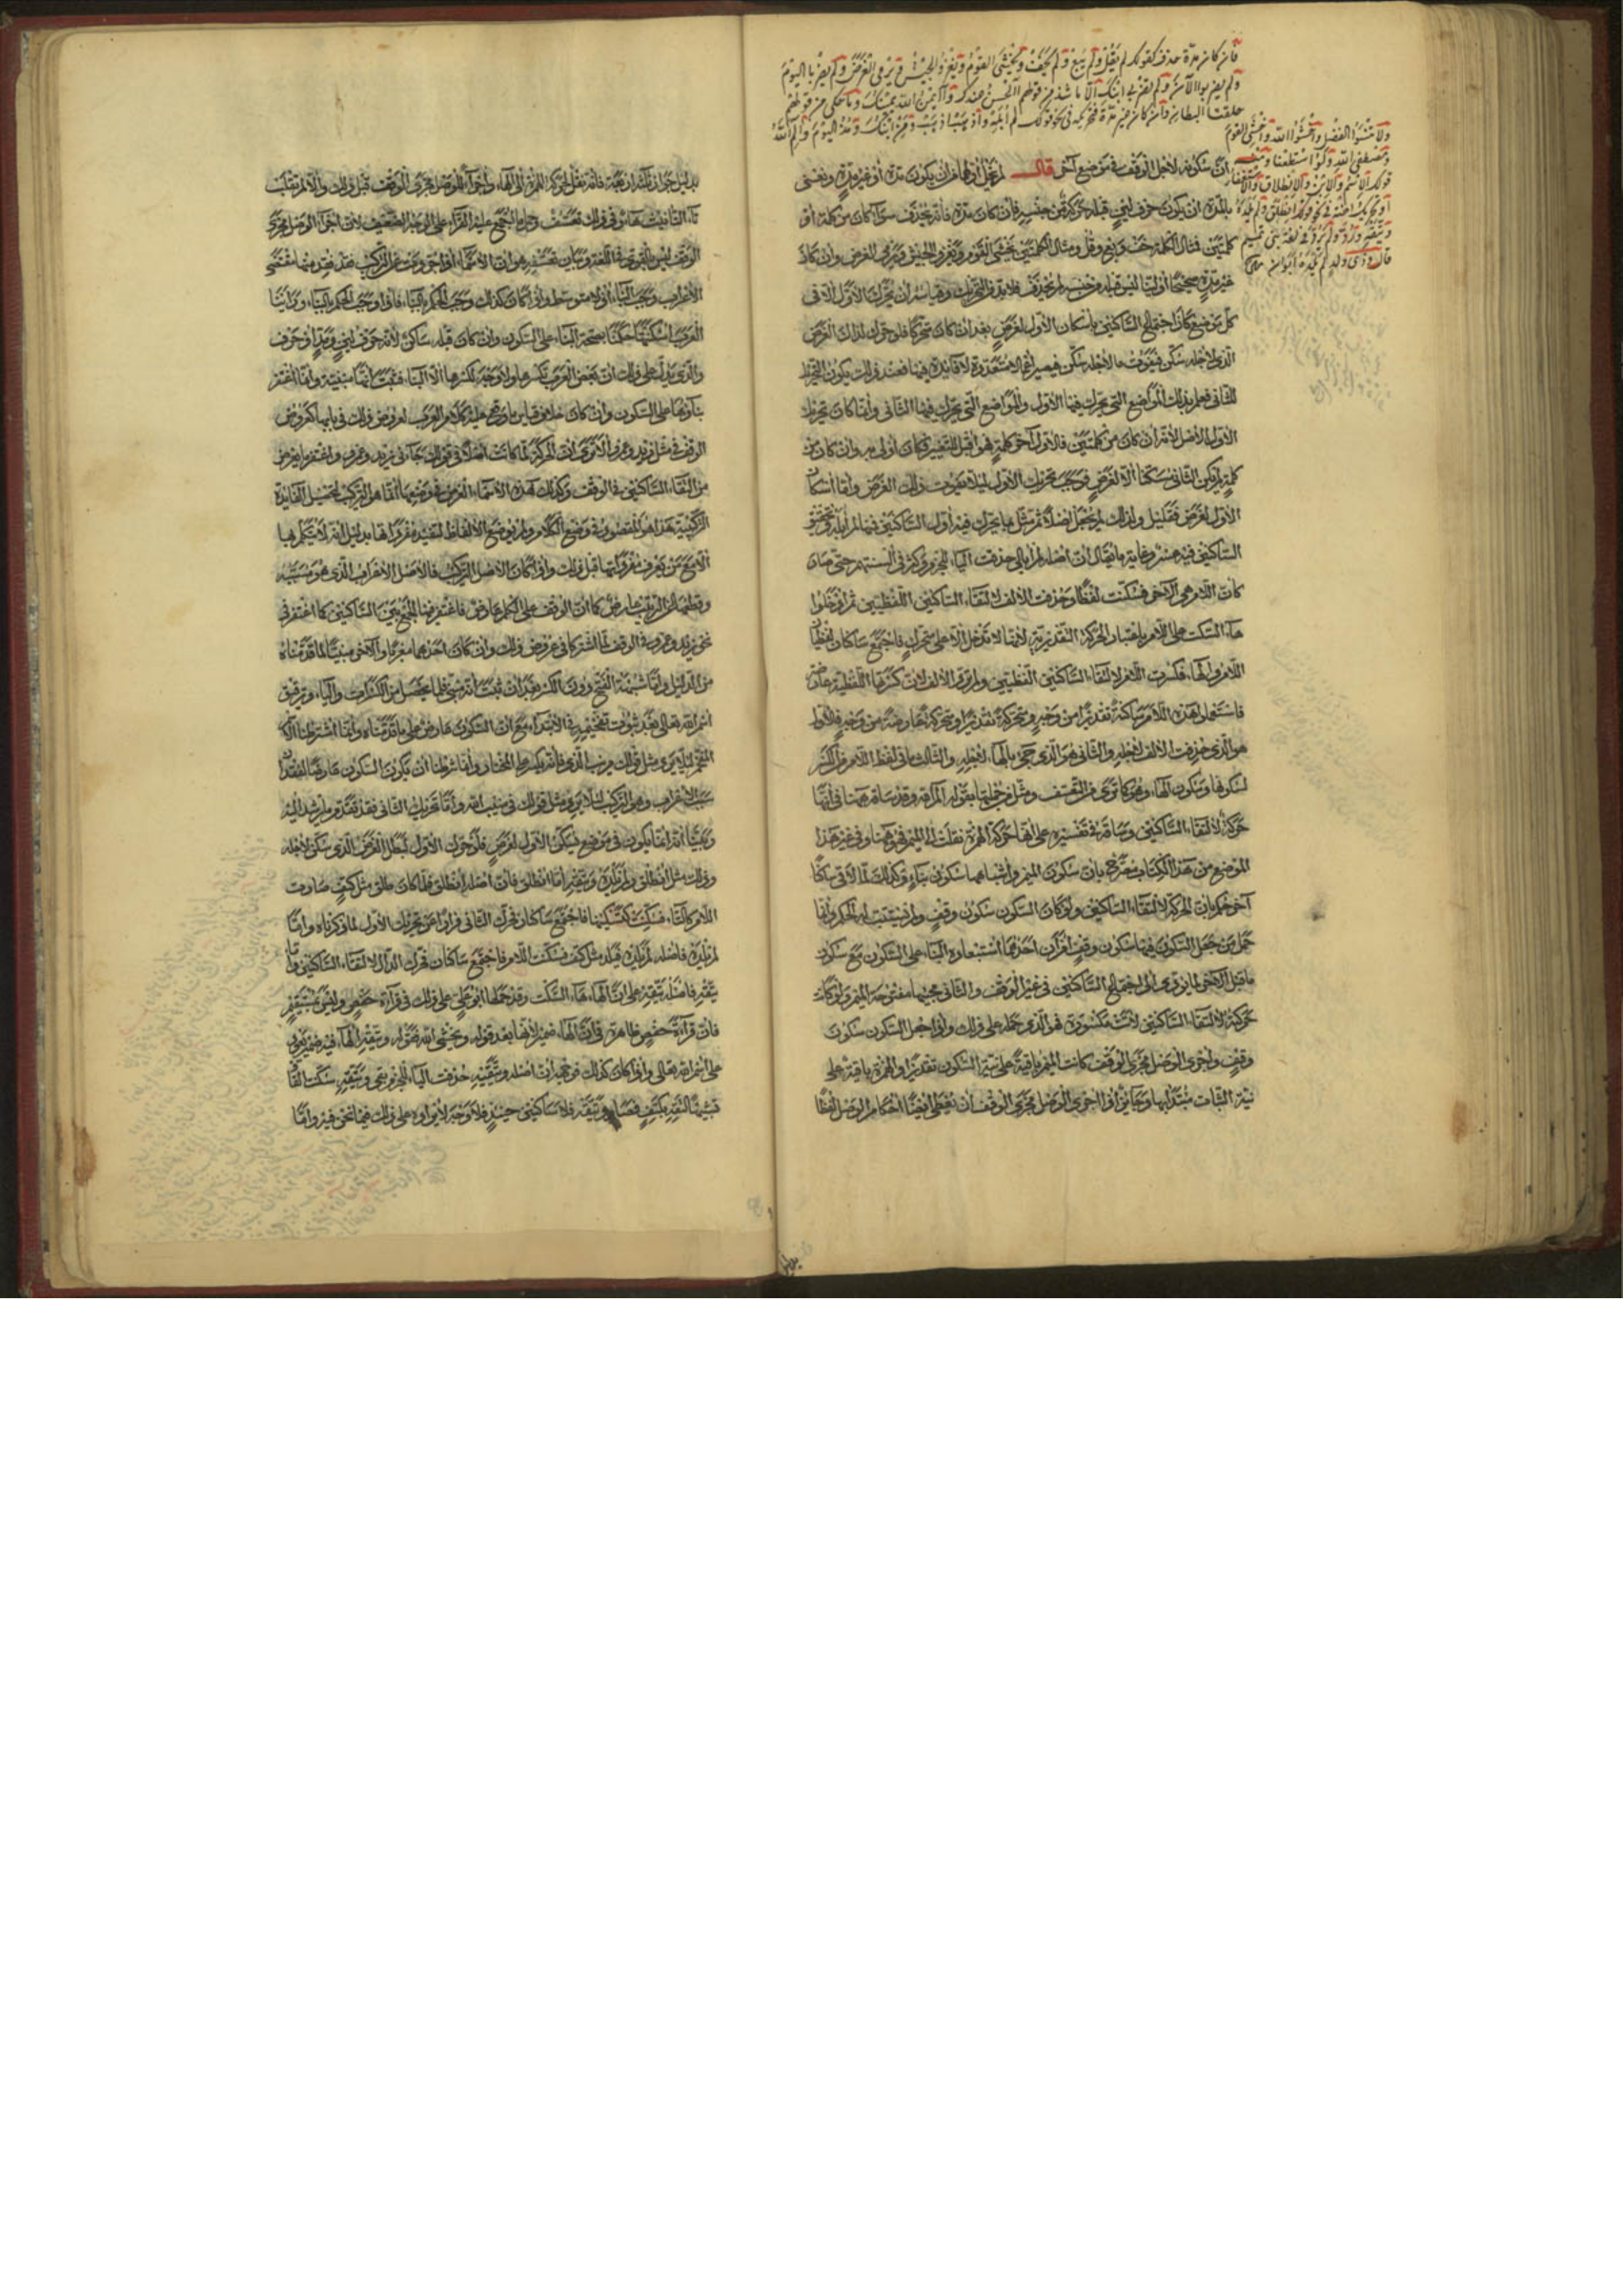 فان كان مدة حذف كقولك لم يقل ولم يبع ولم يخف ويخشى القوم ويغزو الجيش ويرمى الغرض ولم يضربا اليوم
ولم يضربوا الآن ولم تضربى ابنك الا ما شذ من قولهم آلحسن عندك وآيمن الله يمينك وما حكى من قولهم
حلقتا البطان وان كان غير مدة فتحريكه فى نحو قولك لم ابله واذهب اذهب ومن ابنك ومذ اليوم والم الله
ولا تنسوا الفضل واخشوا الله واخشى القوم
ومصطفى الله ولو استطعنا ومنه
قولك الاسم والابن والانطلاق والاستغفار
او تحريك اخيه فى نحو قولك انطلق ولم يلده
ويتقه ورد ولم يرد فى لغة بنى تميم
قال وذى ولد لم يلده ابوان
ان سكونه لاجل الوقف فى موضع آخر قال لم يخل اولهما من ان يكون مدة او غير مدة ونعنى
بالمدة ان يكون حرف لين قبله حركة من جنسه فان كان مدة فانه يحذف سواء كان من كلمة او
كلمتين فمثال الكلمة خف وبع وقل ومثال الكلمتين يخشى القوم ويغزو الجيش ويرمى الغرض وان كان
غير مدة صحيحا او لينا ليس قبله من جنسه لم يحذف فلا بد من التحريك وقياسه ان يحرك الاول الا فى
كل موضع كان اجتماع الساكنين باسكان الاول لغرض بعد ان كان متحركا فلو حرك لذلك الغرض
الذى لاجله سكن فيفوت ما لاجله سكن
الثانى فعلم بذلك المواضع التى يحرك فيها الاول والمواضع التى يحرك فيها الثانى وانما كان تحريك
الاول الاصل لانه ان كان من كلمتين فالاول آخر كلمة فهو اقبل للتغيير فكان اولى به وان كان من
كلمة لم يكن الثانى سكن الا لغرض فوجب تحريك الاول ليلا يفوت ذلك الغرض واما اسكان
الاول لغرض فقليل ولذلك لم يجعل اصلا ثم مثل ما يحرك فيه اول الساكنين فيها لم ابله وتحقيق
الساكنين فيه عسر وغاية ما يقال ان اصله لم ابالى حذفت الياء للجزم وكثر فى السنتهم حتى صار
كان اللام هى الآخر فسكنت لفظا وحذفت الالف لالتقاء الساكنين اللفظيين ثم ادخلوا
هاء السكت على اللام باعتبار الحركة التقديرية لانها لا تدخل الا على متحرك فاجتمع ساكنان لفظا
اللام والهاء فكسرت اللام لالتقاء الساكنين اللفظيين ولم ترد الالف لان كسرتها اللفظية عارضة
فاستعمل هذه اللام ساكنة تقديرا من وجه ومتحركة تقديرا ومتحركة عارضة من وجه فالاول
هو الذى حذفت الالف لاجله والثانى هو الذى جئ بالهاء لاجله والثالث ما فى لفظ اللام من الكسر
لسكونها وسكون الهاء وهو كما ترى من التعسف ومثل من جملتها بقوله الم الله وقد ساقه ههنا فى انها
حركة لالتقاء الساكنين وساقه فى تفسيره على انها حركة الهمزة نقلت الى الميم فهو ههنا وفى غير هذا
الموضع من هذا الكتاب مصرح بان سكون الميم واشباهها سكون بناء وكذلك لما لاقى ساكنا
آخر حكم بان الحركة لالتقاء الساكنين ولو كان السكون سكون وقف ولم يستتب له الحكم وانما
حمل من جعل السكون فيها سكون وقف امران احدهما استبعاده البناء على السكون مع سكون
ما قبل الآخر لما يؤدى الى اجتماع الساكنين فى غير الوقف والثانى مجيئها مفتوحة الميم ولو كانت
حركة لالتقاء الساكنين لكانت مكسورة فهو الذى حمله على ذلك واذا جعل السكون سكون
وقف واجرى الوصل مجرى الوقف كانت الميم باقية على نية السكون تقديرا والهمزة باقية على
نية الثبات مبتدأ بها وجائز اذا اجرى الوصل مجرى الوقف ان تعطى ايضا احكام الوصل لفظا
بدليل جواز ثلثه اربعة فانه نقل حركة الهمزة الى الهاء واجراء الوصل مجرى الوقف قبل ذلك والا لم تقلب
تاء التانيث هاء وفى ذلك تعسف وحمل ما اجمع عليه القراء على الوجه الضعيف لان اجراء الوصل مجرى
الوقف ليس بالقوى فى اللغة وبيان تعسفه هو ان الاسماء اذا جردت عن التركيب فقد فقد منها مقتضى
الاعراب وجب البناء اذ لا متوسط واذا كان كذلك وجب الحكم بالبناء فاذا وجب الحكم بالبناء وراينا
العرب اسكنتها حكمنا بصحة البناء على السكون وان كان قبله ساكن لانه حرف لين ومد او حرف
والذى يدل على ذلك ان بعض العرب تكسرها ولا وجه لكسرها الا البناء فثبت انها مبنية وانما اغتفر
بناؤها على السكون وان كان خلاف قياس ما وقع عليه كلام العرب لعروض ذلك فى بابها كعروض
الوقف فى مثل زيد وعمرو الا ترى ان الحركة لما كانت اصلا فى قولك جاءنى زيد وعمرو اغتفر ما يعرض
من التقاء الساكنين فى الوقف وكذلك هذه الاسماء الغرض فى وضعها انما هو التركيب لتحصيل الفايدة
التركيبية هذا هو المقصود فى وضع الكلام ولم توضع الالفاظ لتفيد مفرداتها بدليل انه لا يتكلم بها
الا مع من يعرف مفرداتها قبل ذلك واذا كان الاصل التركيب فالاصل الاعراب الذى هو مسببه
وقطعها عن التركيب عارض كما ان الوقف على الكلم عارض فاغتفر هنا الجمع بين الساكنين كما اغتفر فى
نحو زيد وعمرو فى الوقف لما اشتركا فى عروض ذلك وان كان احدهما معربا والآخر مبنيا لما قدمناه
من الدليل واما شبهة الفتح دون الكسر فبعد ان ثبت انه مبنى فلما يحصل من الكسرات والياء وترقيق
اسم الله تعالى بعد ثبوت تفخيمه فى الابتداء مع ان السكون عارض على ما قدمناه وانما اشترطنا
التفخيم ليلا يرد مثل قولك مريب الذى فانه يكسر على المختار وانما شرطنا ان يكون السكون عارضا لفقدان
سبب الاعراب وهو التركيب لئلا يرد مثل قولك فى منيب الله واما تحريك الثانى فقد تقدم ما يرشد اليه
وبينا انه انما يكون فى موضع يسكن الاول لغرض فلو حرك الاول لبطل الغرض الذى سكن لاجله
وذلك مثل انطلق ولم يلده ويتقه اما انطلق فان اصله انطلق فلما كان طلق مثل كتف صارت
اللام كالتاء فسكنت كتسكينها فاجتمع ساكنان فحرك الثانى فرارا عن تحريك الاول لما ذكرناه واما
لم يلده فاصله لم يلده فيلد مثل كتف فسكنت اللام فاجتمع ساكنان فحرك الدال لالتقاء الساكنين واما
يتقه فاصله يتقه على ان الهاء هاء السكت وقد حملها ابو على على ذلك فى قراءة حفص وليس بمستقيم
فان قراءة حفص ظاهرة فى ان الهاء ضمير لانها بعد قوله ويخشى الله فقوله ويتقه الهاء فيه ضمير يعود
على اسم الله تعالى واذا كان كذلك فوجهه ان اصله ويتقيه حذفت الياء للجزم بقى ويتقه سكنت القاف
تشبيها لتقه بكتف فصار ويتقه فلا ساكنين حينئذ فلا وجه لايراده على ذلك فيما نحن فيه واما